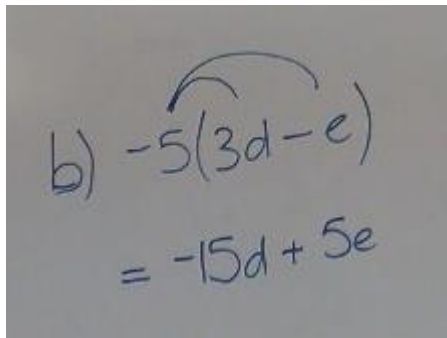 b) -5(3d-e)
= -15d + 5e